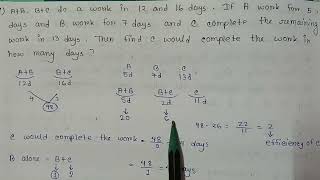 A+B, B+C do a work in 12 and 16 days. If A work for 5
days and B work for 7 days and C complete the remaining
work in 13 days. Then find C would complete the work in
how many days?
A+B B+C A B C
12d 16d 5d 7d 13d
4 3
48
A+B B+C C
5d 2d 11d
20 6
48-26 = 22/11 = 2
efficiency of C
C would complete the work = 48/2 days
B alone = B+C
= 48/1 days